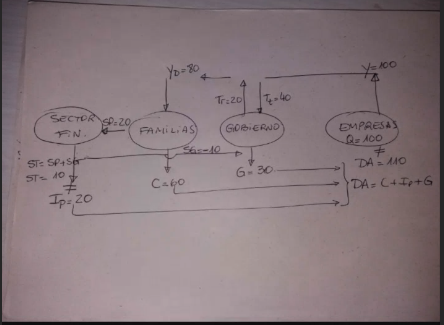 YD=80
Y=100
Tr=20
Tt=40
SECTOR
F.N.
SP=20
FAMILIAS
GOBIERNO
EMPRESAS
Q=100
ST=SP+SG
SG=-10
ST=10
≠
IP=20
C=60
G=30
≠
DA=110
DA=C+IP+G